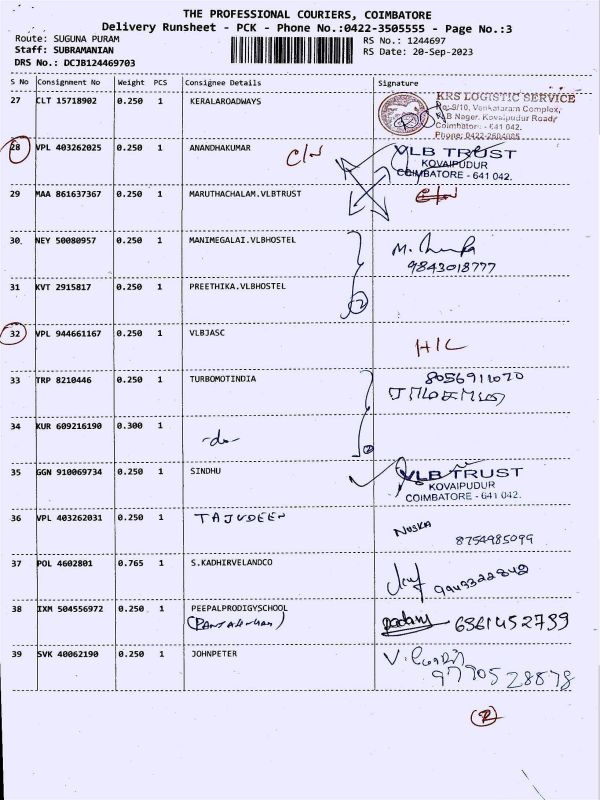 THE PROFESSIONAL COURIERS, COIMBATORE
Delivery Runsheet - PCK - Phone No.:0422-3505555 - Page No.:3
Route: SUGUNA PURAM RS No.: 1244697
Staff: SUBRAMANIAN RS Date: 20-Sep-2023
DRS No.: DCJB124469703
S No Consignment No Weight PCS Consignee Details Signature
27 CLT 15718902 0.250 1 KERALAROADWAYS
KRS LOGISTIC SERVICE
No: 9/10, Venkataram Complex,
VLB Nagar, Kovaipudur Road
Coimbatore - 641 042.
Phone: 0422-2604085
28 VPL 403262025 0.250 1 ANANDHAKUMAR C/N
VLB TRUST
KOVAIPUDUR
COIMBATORE - 641 042.
29 MAA 861637367 0.250 1 MARUTHACHALAM.VLBTRUST C/N
30 NEY 50080957 0.250 1 MANIMEGALAI.VLBHOSTEL M.
9843018777
31 KVT 2915817 0.250 1 PREETHIKA.VLBHOSTEL 2
32 VPL 944661167 0.250 1 VLBJASC H/C
33 TRP 8210446 0.250 1 TURBOMOTINDIA 8056911020
34 KUR 609216190 0.300 1 -do- 2
35 GGN 910069734 0.250 1 SINDHU
VLB TRUST
KOVAIPUDUR
COIMBATORE - 641 042.
36 VPL 403262031 0.250 1 TAJUDEEN
8754985099
37 POL 4602801 0.765 1 S.KADHIRVELANDCO
9943322842
38 IXM 504556972 0.250 1 PEEPALPRODIGYSCHOOL
6361452739
39 SVK 40062190 0.250 1 JOHNPETER
9790528878